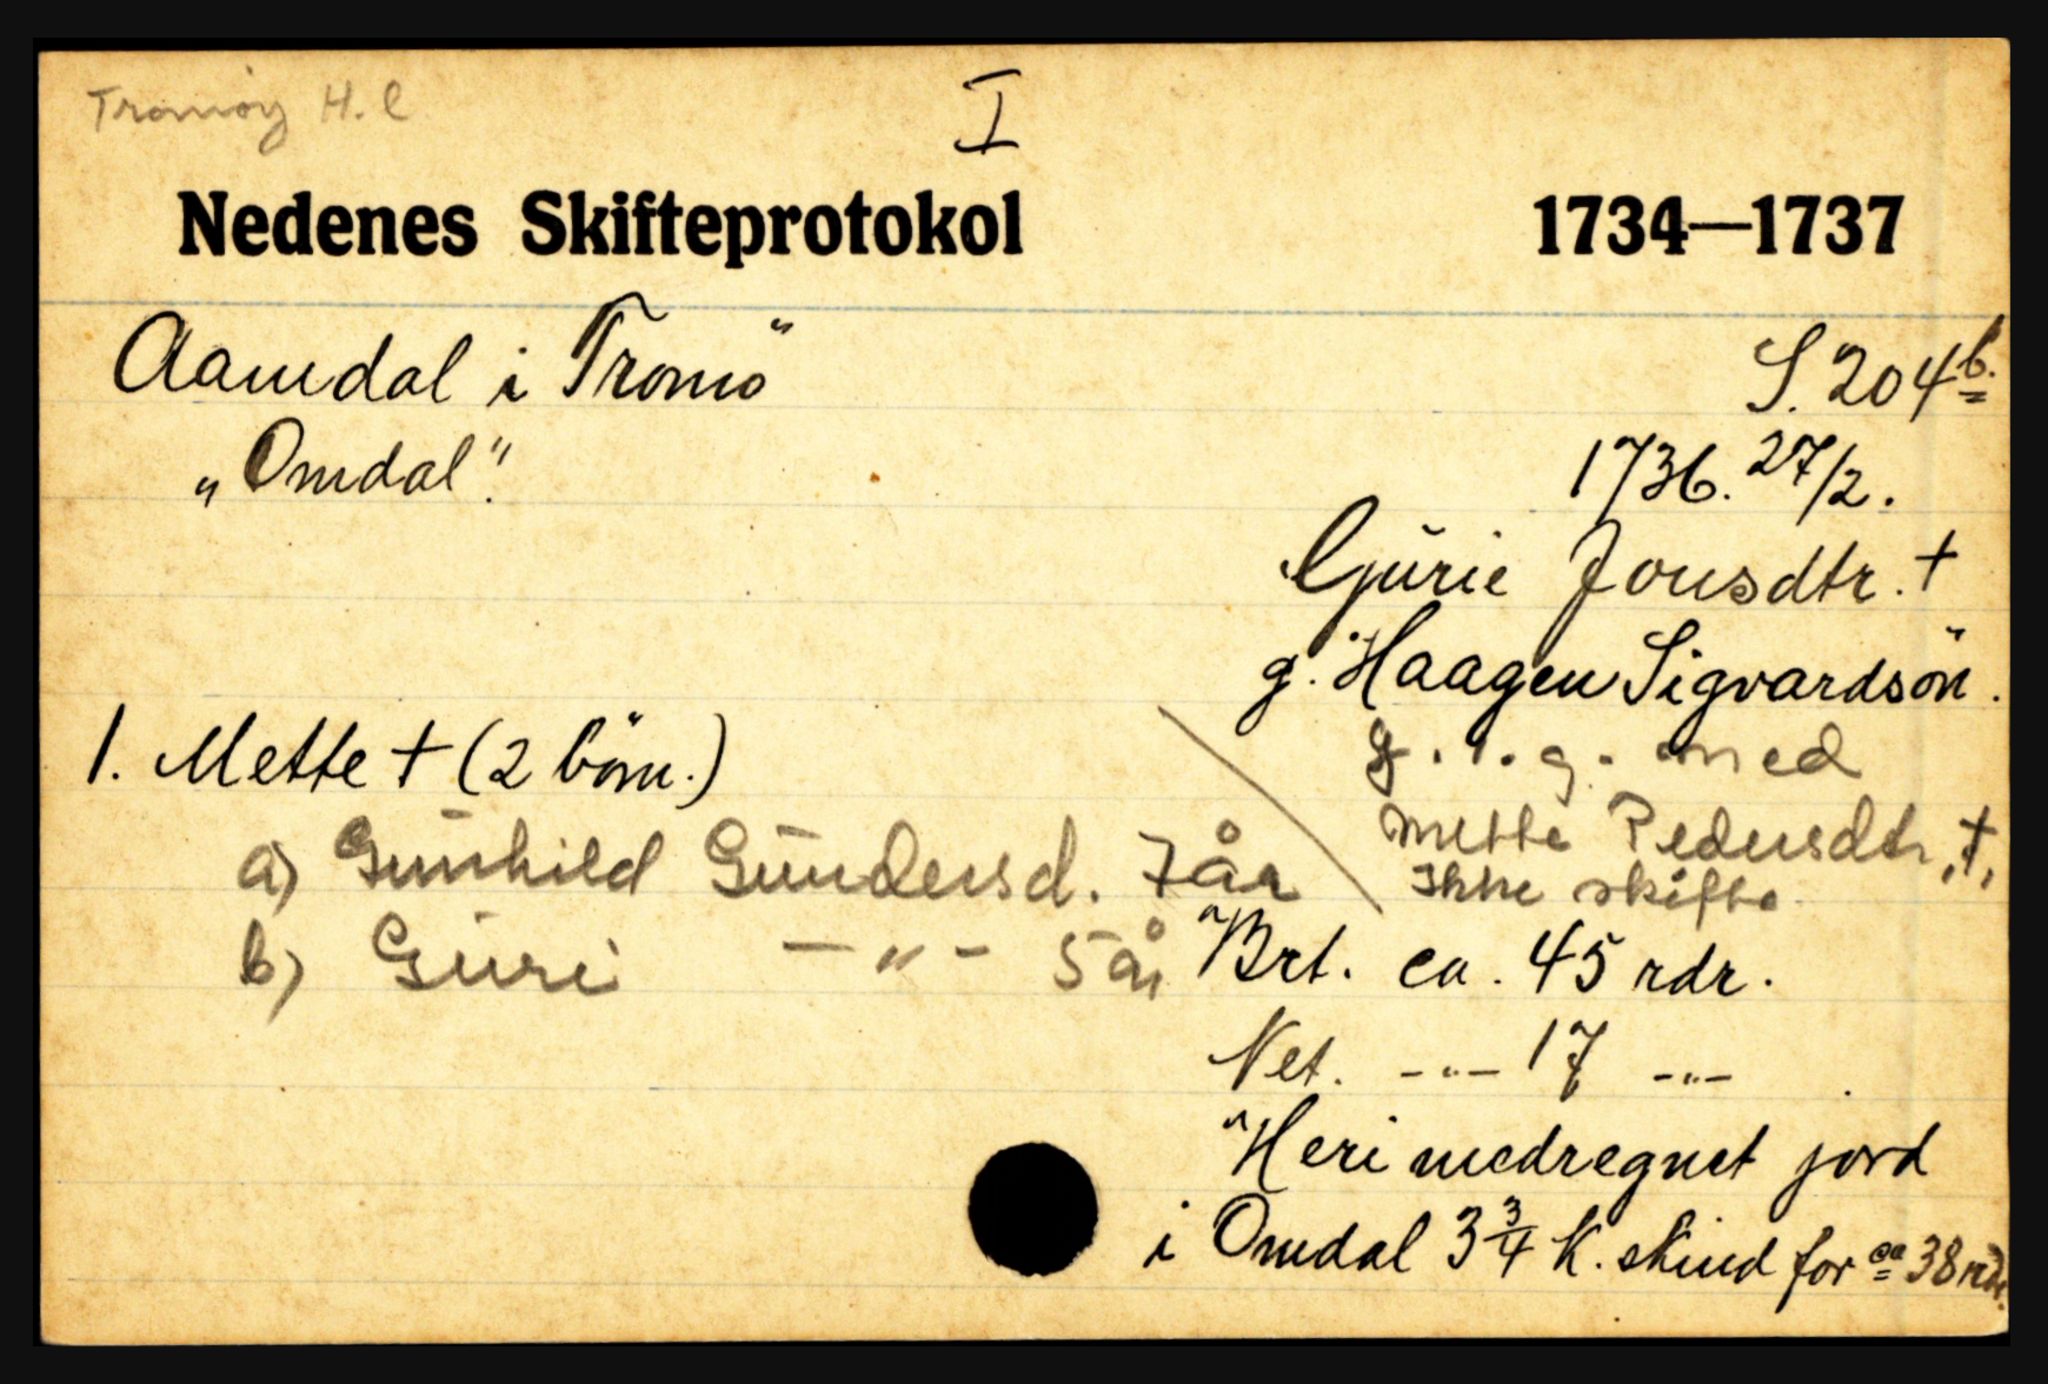 Tromøy H. C
I
Nedenes Skifteprotokol 1734—1737
Aamdal i Tromö S. 204b.
"Omdal". 1736. 27/2.
Gurie Jonsdtr. +
g. Haagen Sigvardsön.
1. Mette + (2 börn.) g. 1. g. med
Mette Pedersdtr. +.
a) Gunhild Gundersd. 7 år Ikke skifte
b) Guri —"— 5 år Brt. ca. 45 rdr.
Net. —"— 17 —"—
Heri medregnet jord
i Omdal 3 3/4 K. skind for ca 38 rdr.